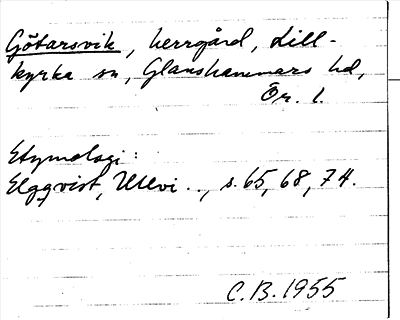 Götarsvik, herrgård, Lill-
kyrka sn, Glanshammars hd,
Ör. l.
Etymologi:
Elgqvist, Ullvi .., s. 65, 68, 74.
C.B. 1955